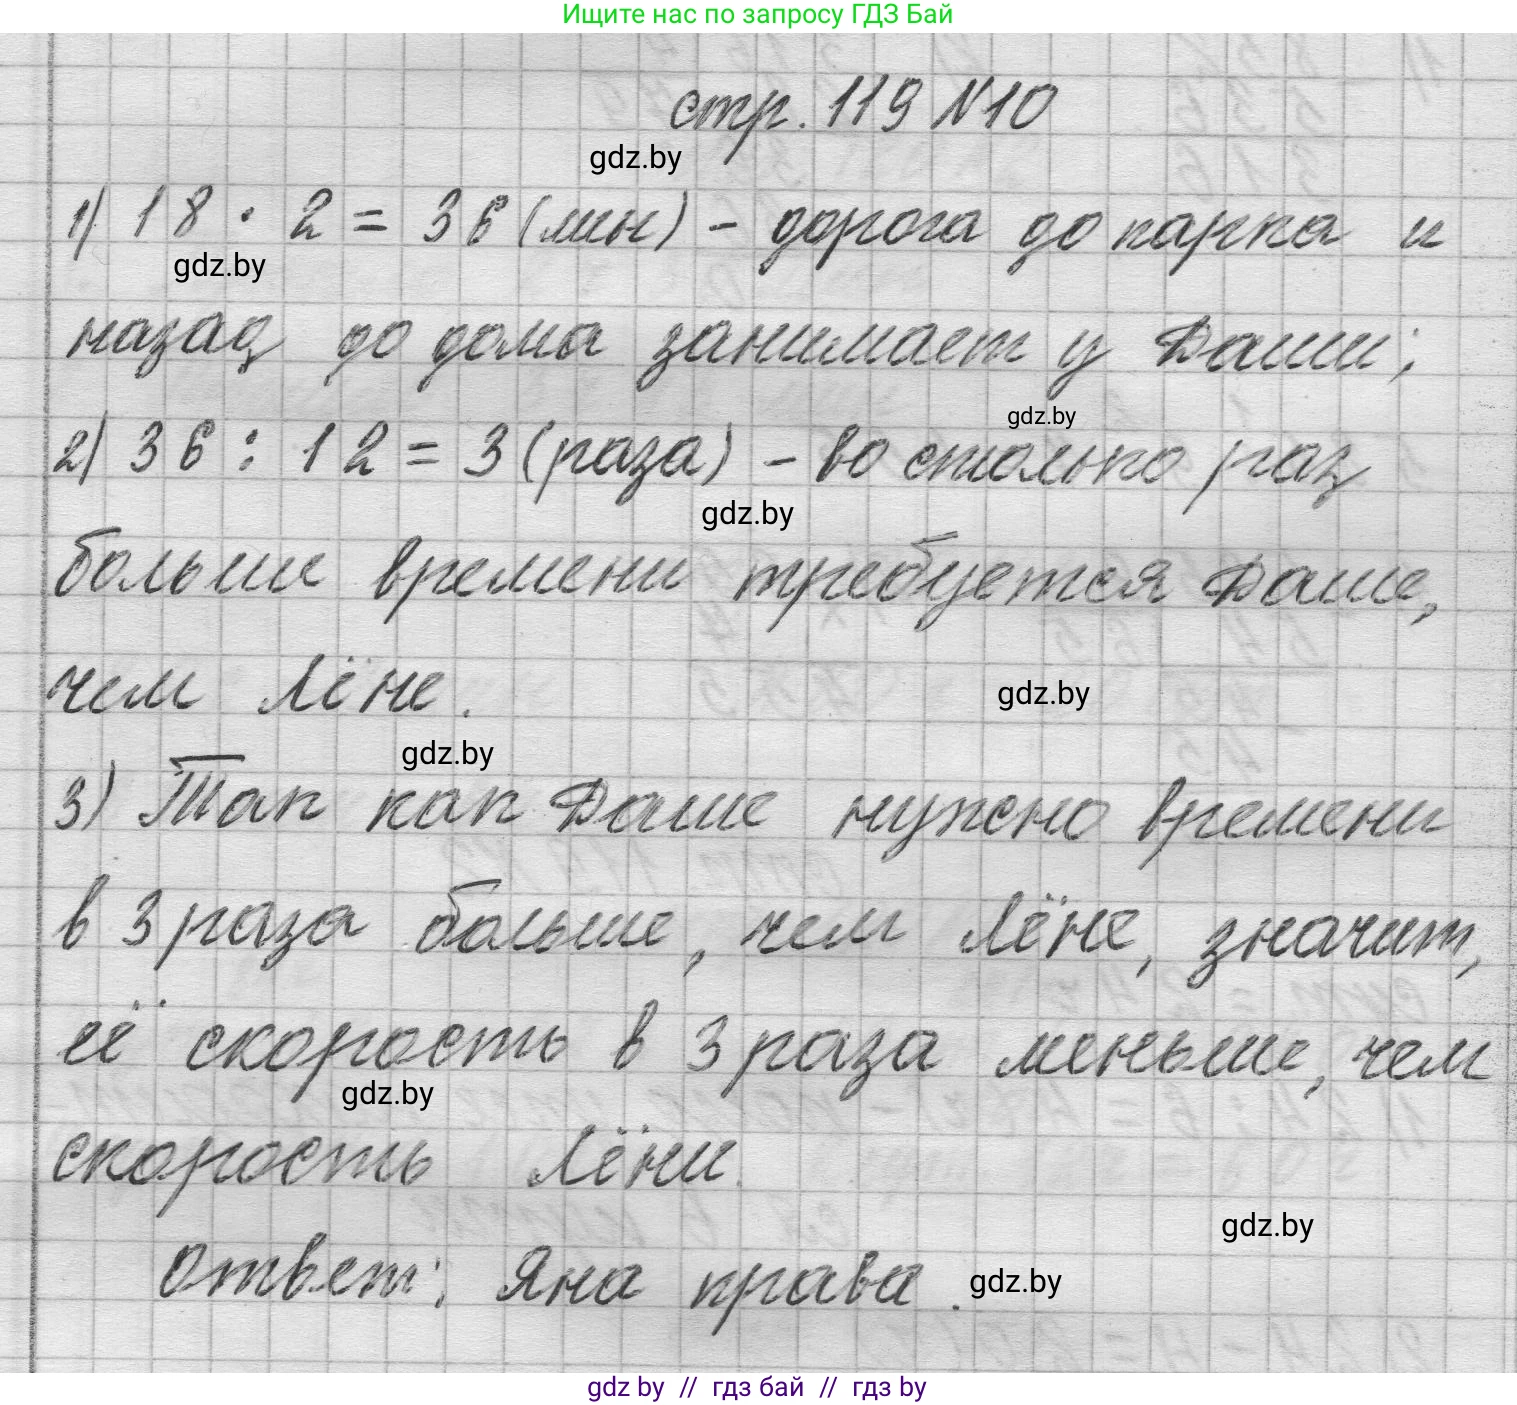 Ищите нас по запросу ГДЗ Бай
стр. 119 №10
gdz.by
1) 18 · 2 = 36 (мин) - дорога до парка и
gdz.by
назад до дома занимает у Даши;
gdz.by
2) 36 : 12 = 3 (раза) - во столько раз
gdz.by
больше времени требуется Даше,
чем Лёне.
gdz.by
gdz.by
3) Так как Даше нужно времени
в 3 раза больше, чем Лёне, значит,
её скорость в 3 раза меньше, чем
gdz.by
скорость Лёни.
gdz.by
Ответ: Яна права.
gdz.by
gdz by // гдз бай // гдз by